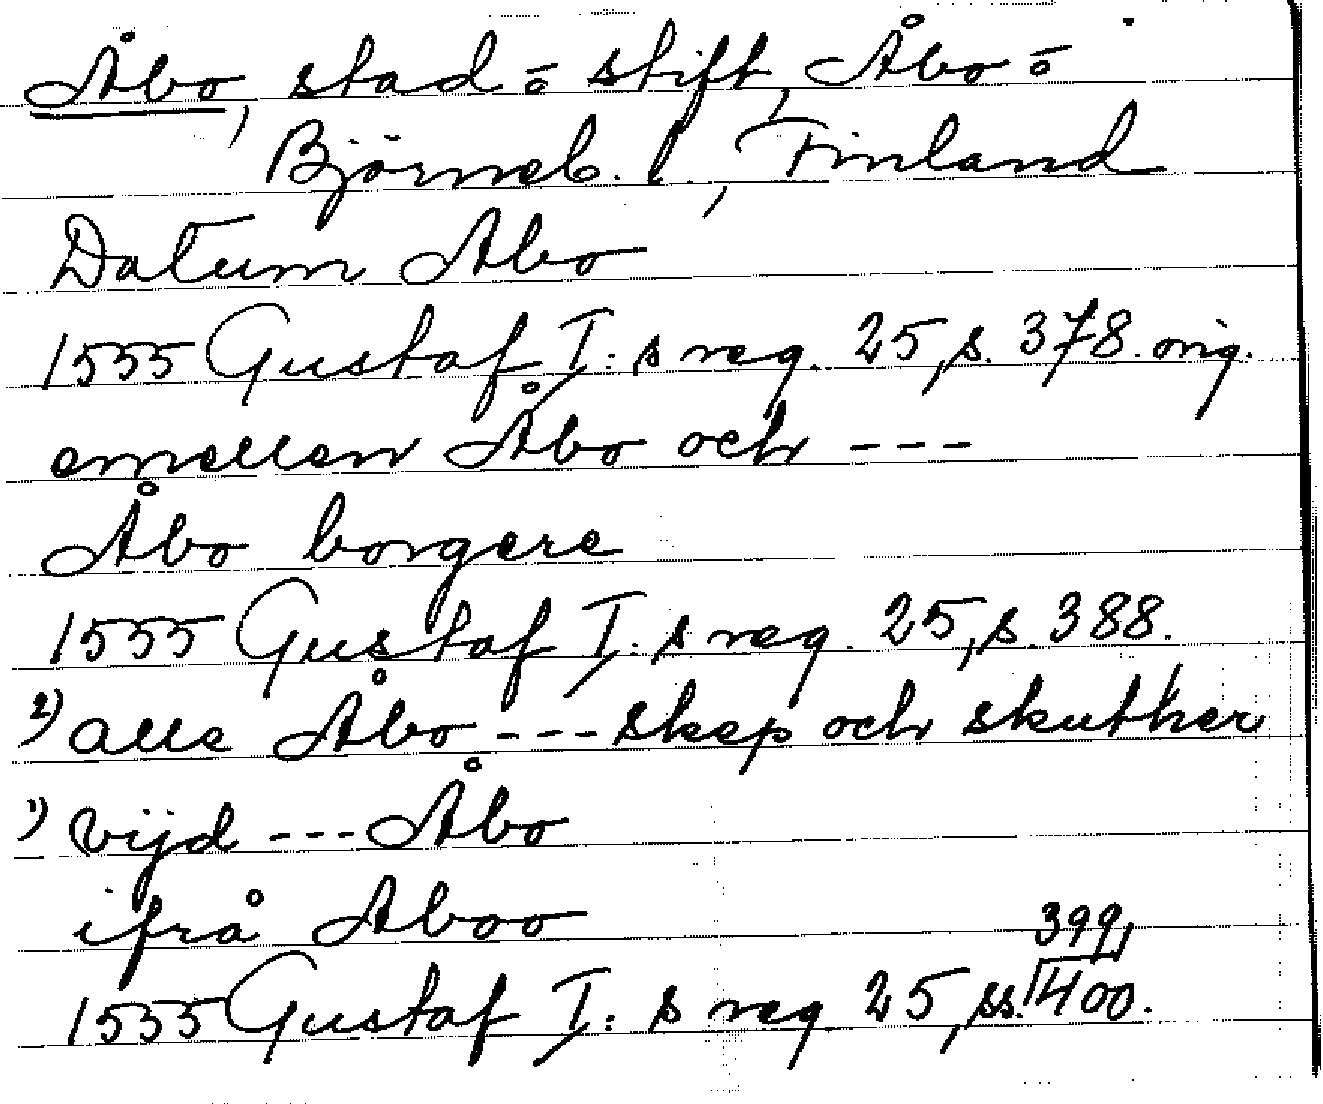 Åbo, stad o. stift, Åbo o.
Björneb. l., Finland
Datum Abo
1555 Gustaf I:s reg. 25, s. 378. orig.
emellen Åbo och ---
Åbo borgere
1555 Gustaf I:s reg. 25, s. 388.
2) alle Åbo --- skep och skuther
1) vijd --- Åbo
ifrå Aboo
399,
1555 Gustaf I:s reg 25, ss. 400.